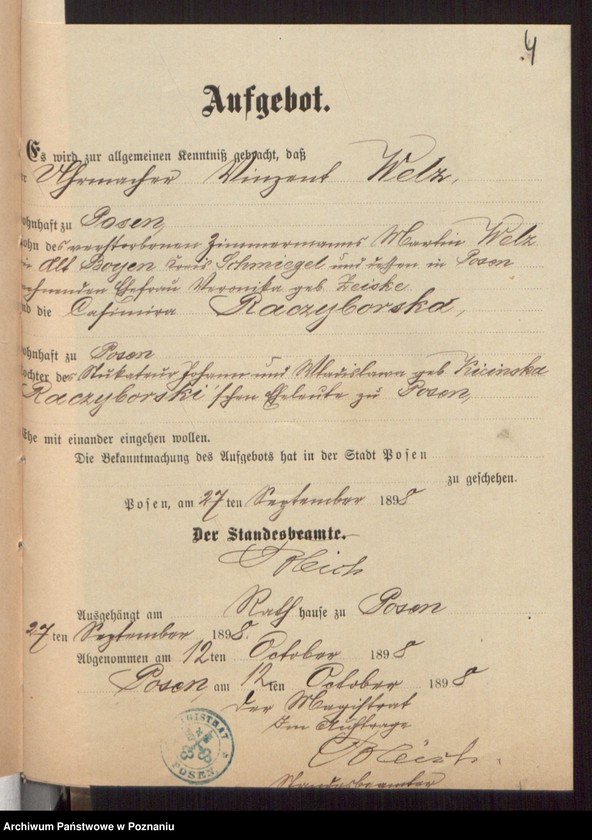 4
Aufgebot.
Es wird zur allgemeinen Kenntniß gebracht, daß
er Uhrmacher Vinzent Welz,
ohnhaft zu Posen,
ohn des verstorbenen Zimmermanns Martin Welz
Alt Boyen Kreis Schmiegel und dessen in Posen
wohnenden Ehefrau Veronika geb Zeiske
nd die Casimira Raczyborska,
ohnhaft zu Posen
ochter des Stukateur Johann und Wladislawa geb Kicinska
Raczyborski'schen Eheleute zu Posen,
Ehe mit einander eingehen wollen.
Die Bekanntmachung des Aufgebots hat in der Stadt Posen
zu geschehen.
Posen, am 27 ten September 1898
Der Standesbeamte.
Ausgehängt am Rathhause zu Posen
27 ten September 1898.
Abgenommen am 12 ten October 1898
Posen, am 12 ten October 1898
Der Magistrat
Im Auftrage
Standesbeamter
MAGISTRAT
POSEN
Archiwum Państwowe w Poznaniu